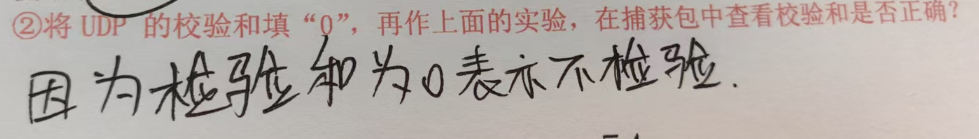 ②将 UDP 的校验和填“0”，再作上面的实验，在捕获包中查看校验和是否正确？
因为检验和为0表示不检验.